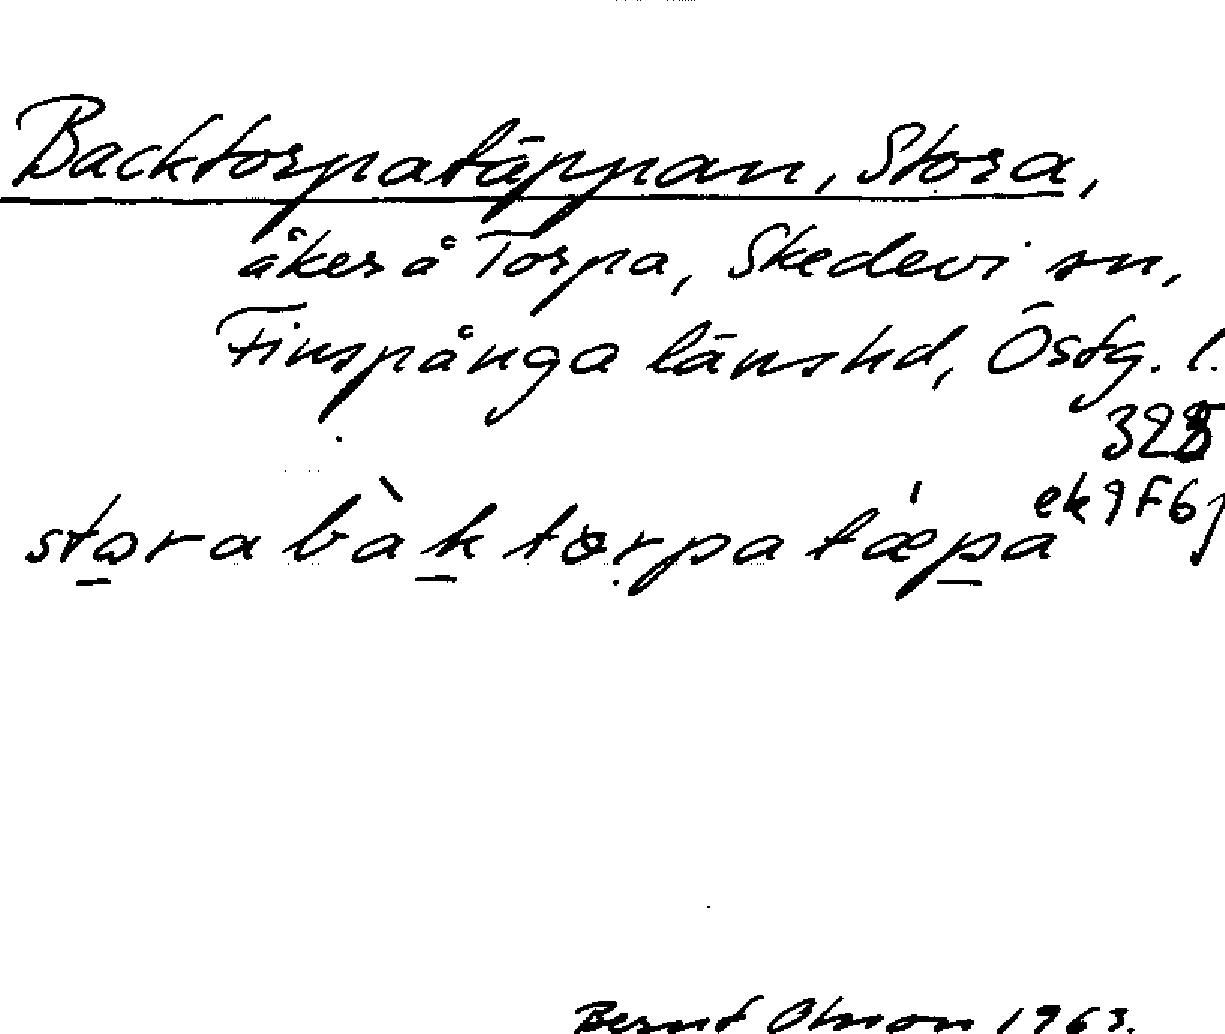 Backtorpatäppan, Stora,
åker å Torpa, Skedevi sn,
Finspånga länshd, Östg. l.
ek 9F6j
stora bàk torpa tæpa
Bernt Olsson 1963.